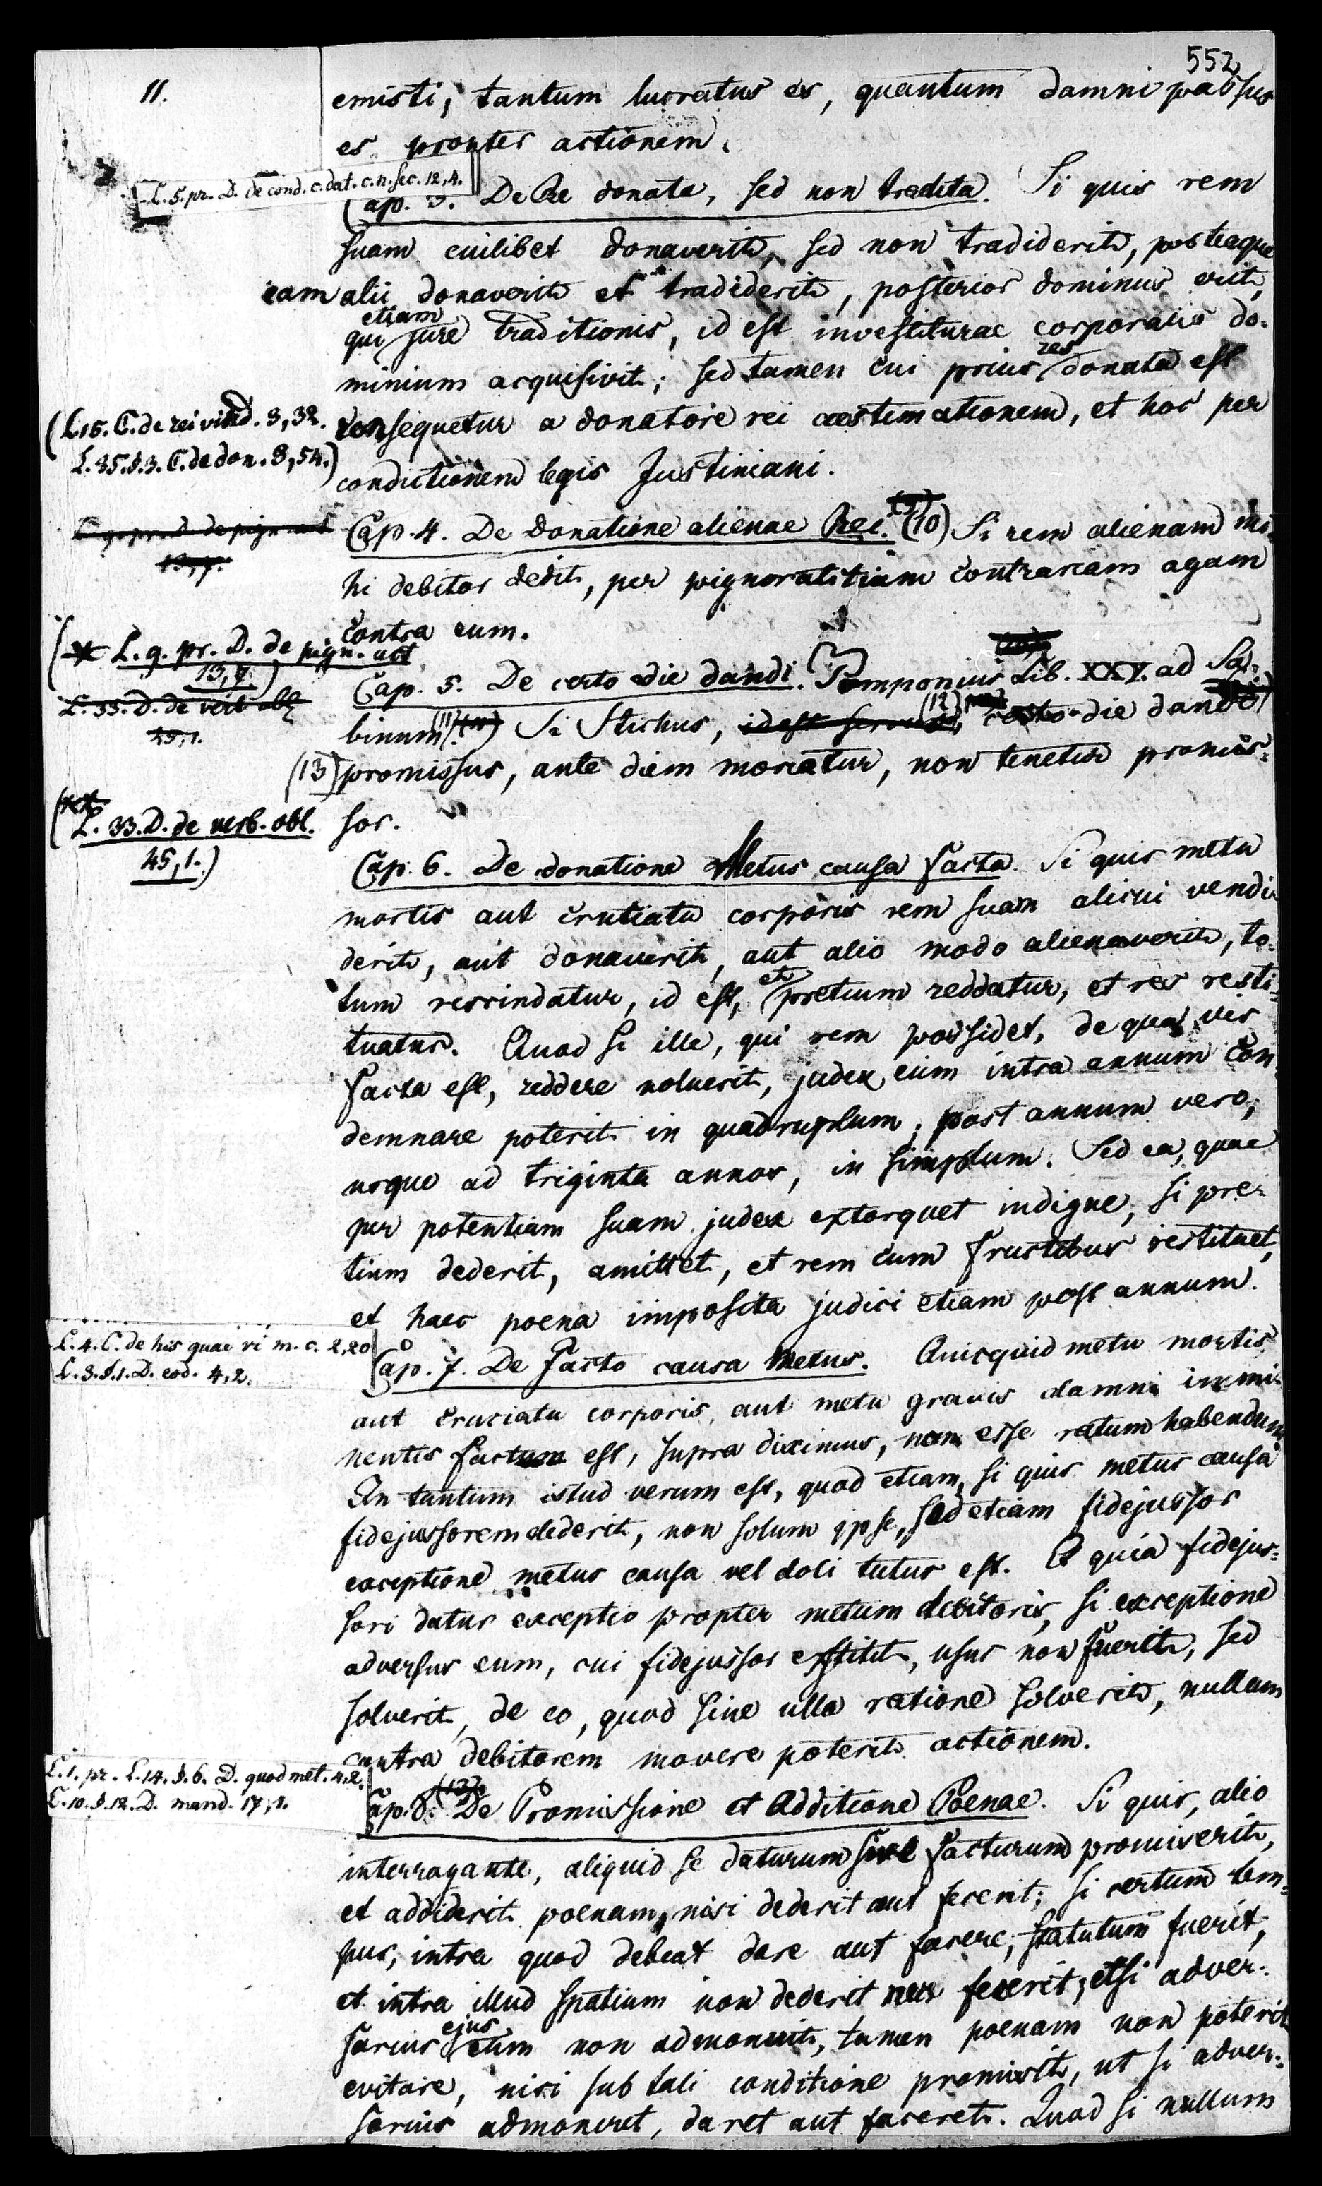 552
11.
emisti, tantum lucratus es, quantum damni passus
es propter actionem.
L. 5. pr. D. de cond. c. dat. c. n. sec. 12, 4.
Cap. 3. De Re donata, sed non tradita. Si quis rem
suam cuilibet donaverit, sed non tradiderit, posteaque
eam alii donaverit et tradiderit, posterior dominus erit,
qui etiam jure traditionis, id est investiturae corporalis do-
minium acquisivit; sed tamen cui prius res donata est
(L. 15. C. de rei vind. 3, 32.
L. 35. §. 3. C. de don. 8, 54.)
consequetur a donatore rei aestimationem, et hoc per
condictionem legis Justiniani.
L. 9. pr. D. de pign. act.
13, 7.
Cap. 4. De donatione alienae Rei. (10) Si rem alienam mi-
hi debitor dedit, per pignoratitiam contrariam agam
contra eum.
(* L. 9. pr. D. de pign. act
13, 7.)
L. 33. D. de verb. obl
45, 1.
Cap. 5. De certo die dandi. Pomponius Lib. XXV. ad Sa-
binum (11) Si Stichus, id est servus, (12) certo die dando
(13) promissus, ante diem moriatur, non tenetur promis-
sor.
(** L. 33. D. de verb. obl.
45, 1.)
Cap. 6. De donatione Metus causa facta. Si quis metu
mortis aut cruciatu corporis rem suam alicui vendi-
derit, aut donaverit, aut alio modo alienaverit, to-
tum rescindatur, id est, et pretium reddatur, et res resti-
tuatur. Quod si ille, qui rem possidet, de qua vis
facta est, reddere noluerit, judex eum intra annum con-
demnare poterit in quadruplum; post annum vero,
usque ad triginta annos, in simplum. Sed ea, quae
per potentiam suam judex extorquet indigne, si pre-
tium dederit, amittet, et rem cum fructibus restituet,
et haec poena imposita judici etiam post annum.
L. 4. C. de his quae vi m. c. 2, 20
L. 3. §. 1. D. eod. 4, 2.
Cap. 7. De Facto causa Metus. Quicquid metu mortis
aut cruciatu corporis, aut metu gravis damni immi-
nentis factum est, supra diximus, non esse ratum habendum
In tantum istud verum est, quod etiam, si quis metus causa
fidejussorem dederit, non solum ipse, sed etiam fidejussor
exceptione metus causa vel doli tutus est. Et quia fidejus-
sori datur exceptio propter metum debitoris, si exceptione
adversus eum, cui fidejussor exstitit, usus non fuerit, sed
solverit, de eo, quod sine ulla ratione solverit, nullam
contra debitorem movere poterit actionem.
L. 1. pr. L. 14. §. 6. D. quod met. 4, 2.
L. 10. §. 12. D. mand. 17, 1.
Cap. 8. (13) De Promissione et Additione Poenae. Si quis, alio
interrogante, aliquid se daturum sive facturum promiserit,
et addiderit poenam, nisi dederit aut fecerit; si certum tem-
pus, intra quod debeat dare aut facere, statutum fuerit,
et intra illud spatium non dederit nec fecerit; etsi adver-
sarius ejus eum non admonuit, tamen poenam non poterit
evitare, nisi sub tali conditione promisit, ut si adver-
sarius admoneret, daret aut faceret. Quod si nullum